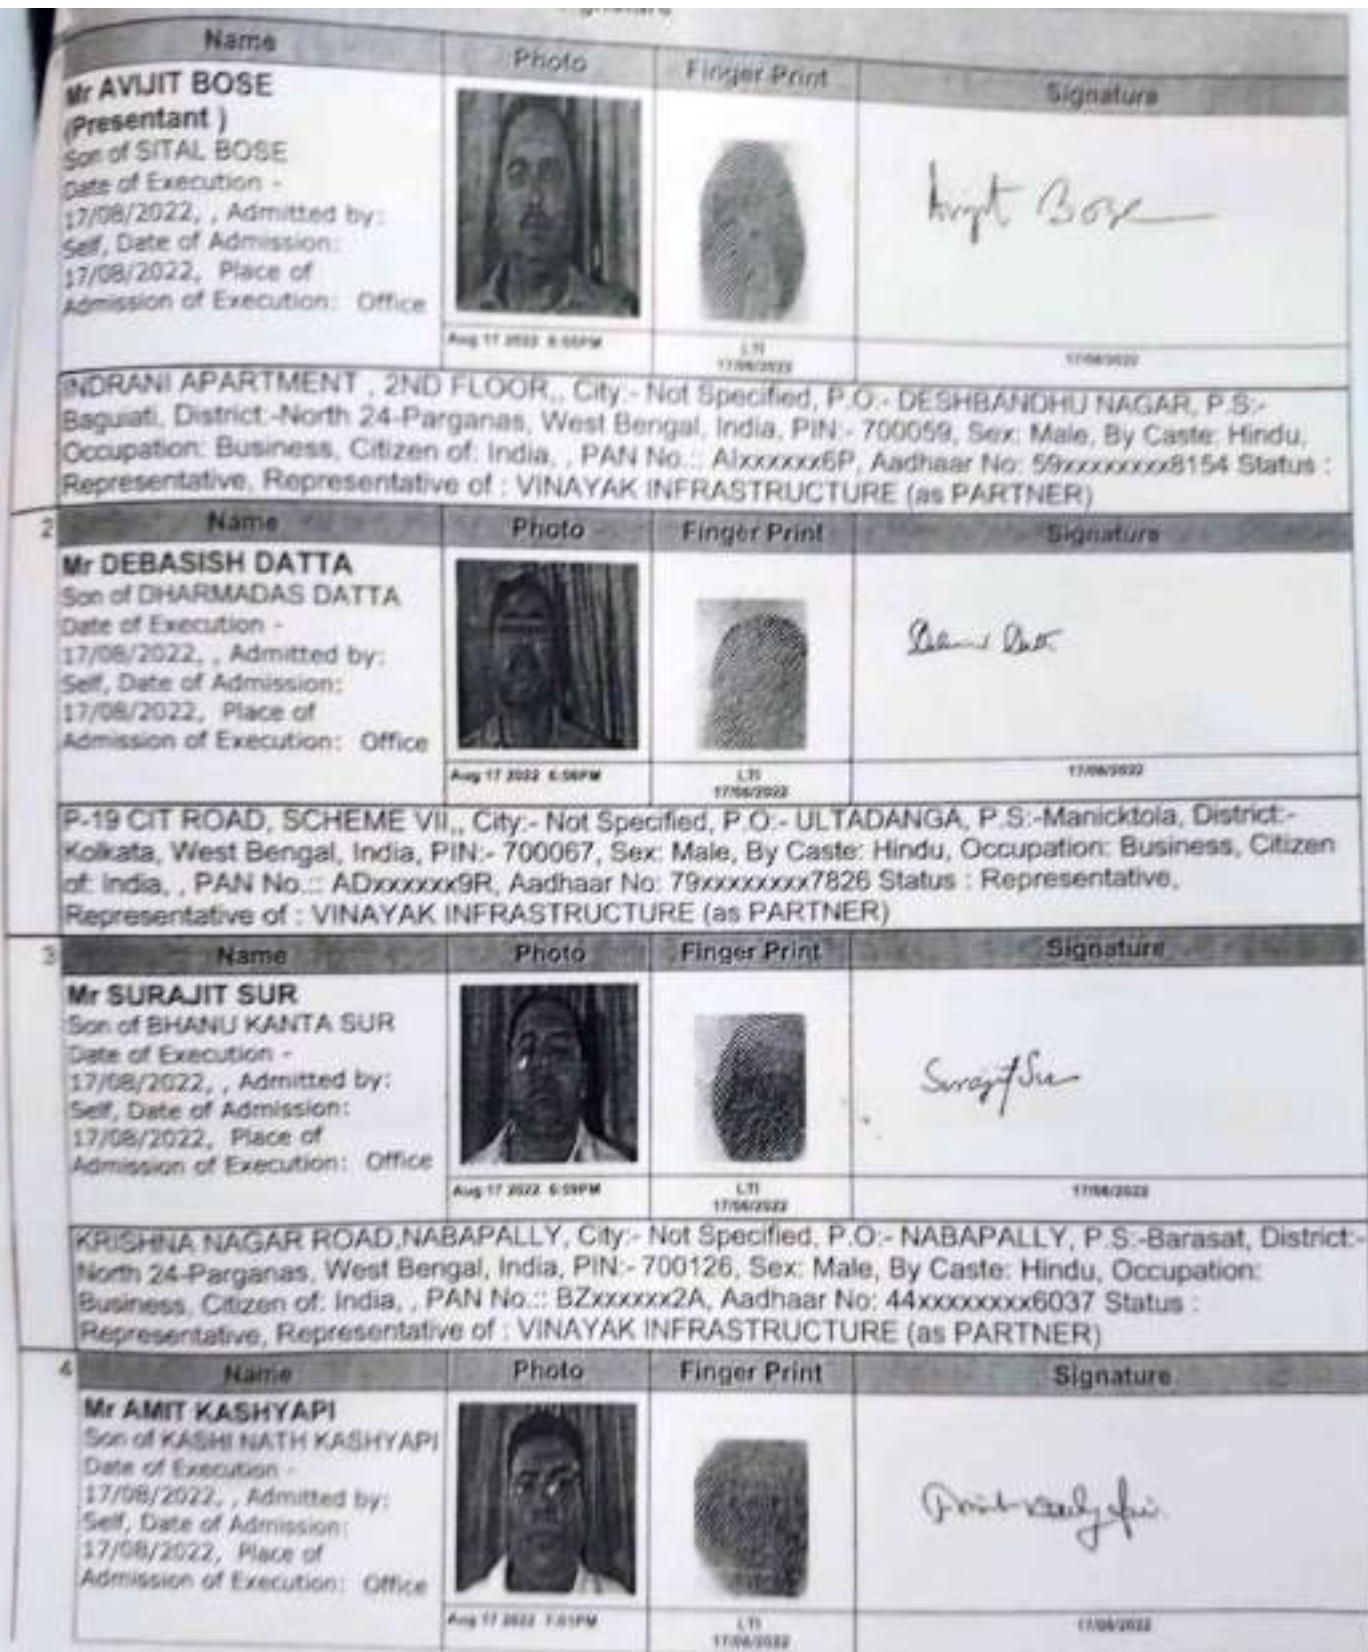 Signature
Name Photo Finger Print Signature
Mr AVIJIT BOSE
(Presentant )
Son of SITAL BOSE
Date of Execution -
17/08/2022, , Admitted by:
Self, Date of Admission:
17/08/2022, Place of
Admission of Execution: Office
Avijit Bose
Aug 17 2022 6:55PM LTI 17/08/2022
17/08/2022
INDRANI APARTMENT , 2ND FLOOR,, City:- Not Specified, P.O:- DESHBANDHU NAGAR, P.S:-
Baguiati, District:-North 24-Parganas, West Bengal, India, PIN:- 700059, Sex: Male, By Caste: Hindu,
Occupation: Business, Citizen of: India, , PAN No.:: AIxxxxxx6P, Aadhaar No: 59xxxxxxxx8154 Status :
Representative, Representative of : VINAYAK INFRASTRUCTURE (as PARTNER)
2 Name Photo Finger Print Signature
Mr DEBASISH DATTA
Son of DHARMADAS DATTA
Date of Execution -
17/08/2022, , Admitted by:
Self, Date of Admission:
17/08/2022, Place of
Admission of Execution: Office
Aug 17 2022 6:56PM LTI 17/08/2022
17/08/2022
P-19 CIT ROAD, SCHEME VII,, City:- Not Specified, P.O:- ULTADANGA, P.S:-Manicktola, District:-
Kolkata, West Bengal, India, PIN:- 700067, Sex: Male, By Caste: Hindu, Occupation: Business, Citizen
of: India, , PAN No.:: ADxxxxxx9R, Aadhaar No: 79xxxxxxxx7826 Status : Representative,
Representative of : VINAYAK INFRASTRUCTURE (as PARTNER)
3 Name Photo Finger Print Signature
Mr SURAJIT SUR
Son of BHANU KANTA SUR
Date of Execution -
17/08/2022, , Admitted by:
Self, Date of Admission:
17/08/2022, Place of
Admission of Execution: Office
Surajit Sur
Aug 17 2022 6:59PM LTI 17/08/2022
17/08/2022
KRISHNA NAGAR ROAD,NABAPALLY, City:- Not Specified, P.O:- NABAPALLY, P.S:-Barasat, District:-
North 24-Parganas, West Bengal, India, PIN:- 700126, Sex: Male, By Caste: Hindu, Occupation:
Business, Citizen of: India, , PAN No.:: BZxxxxxx2A, Aadhaar No: 44xxxxxxxx6037 Status :
Representative, Representative of : VINAYAK INFRASTRUCTURE (as PARTNER)
4 Name Photo Finger Print Signature
Mr AMIT KASHYAPI
Son of KASHI NATH KASHYAPI
Date of Execution -
17/08/2022, , Admitted by:
Self, Date of Admission:
17/08/2022, Place of
Admission of Execution: Office
Amit Kashyapi
Aug 17 2022 7:01PM LTI 17/08/2022
17/08/2022